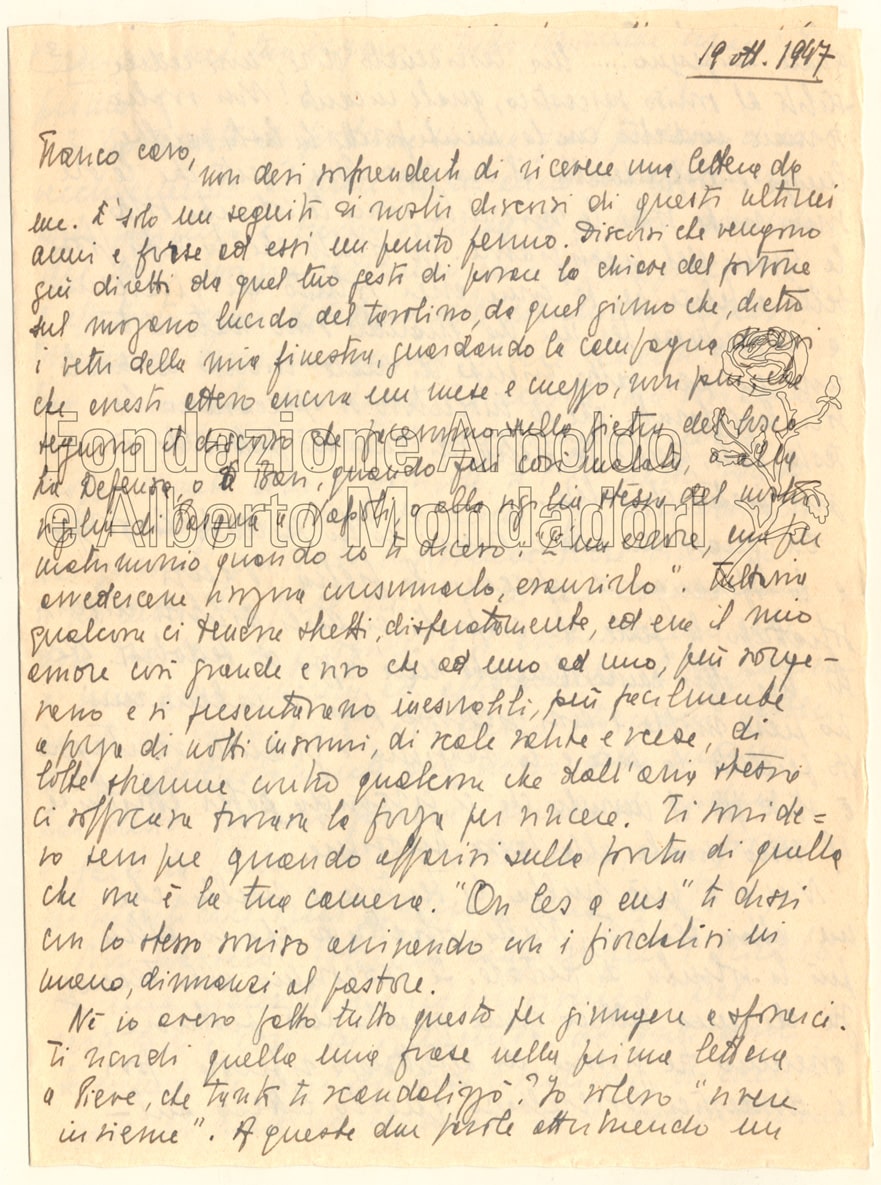 19 ott. 1947
Franco caro,
non devi sorprenderti di ricevere una lettera da
me. È solo un seguito ai nostri discorsi di questi ultimi
anni e forse ad essi un punto fermo. Discorsi che vengono
giù diretti da quel tuo gesto di posare la chiave del portone
sul mogano lucido del tavolino, da quel giorno che, dietro
i vetri della mia finestra, guardando la campagna
che avesti atteso ancora un mese e mezzo, non più che
seguono il discorso che facemmo sulla pietra del
La Defensa, o a Bari, quando fui così malata, o alla
vigilia di a Napoli, o alla vigilia stessa del nostro
matrimonio quando io ti dicevo: "È un errore, ma per
avvedersene bisogna consumarlo, esaurirlo". Tuttavia
qualcosa ci teneva stretti, disperatamente, ed era il mio
amore così grande e vivo che ad uno ad uno, più sorge-
vano e si presentavano inesorabili, più facilmente
a forza di notti insonni, di scale salite e scese, di
lotte strenue contro qualcosa che dall'aria stessa
ci soffocava trovava la forza per vincere. Ti sorride=
vo sempre quando apparivi sulla porta di quella
che ora è la tua camera. "On les a eus" ti dissi
con lo stesso sorriso arrivando con i fiordalisi in
mano, dinnanzi al pastore.
Nè io avevo fatto tutto questo per giungere a sposarci.
Ti ricordi quella mia frase nella prima lettera
a Pieve, che tanto ti scandalizzò? Io volevo "vivere
insieme". A queste due parole attribuendo un
Fondazione Arnoldo
e Alberto Mondadori